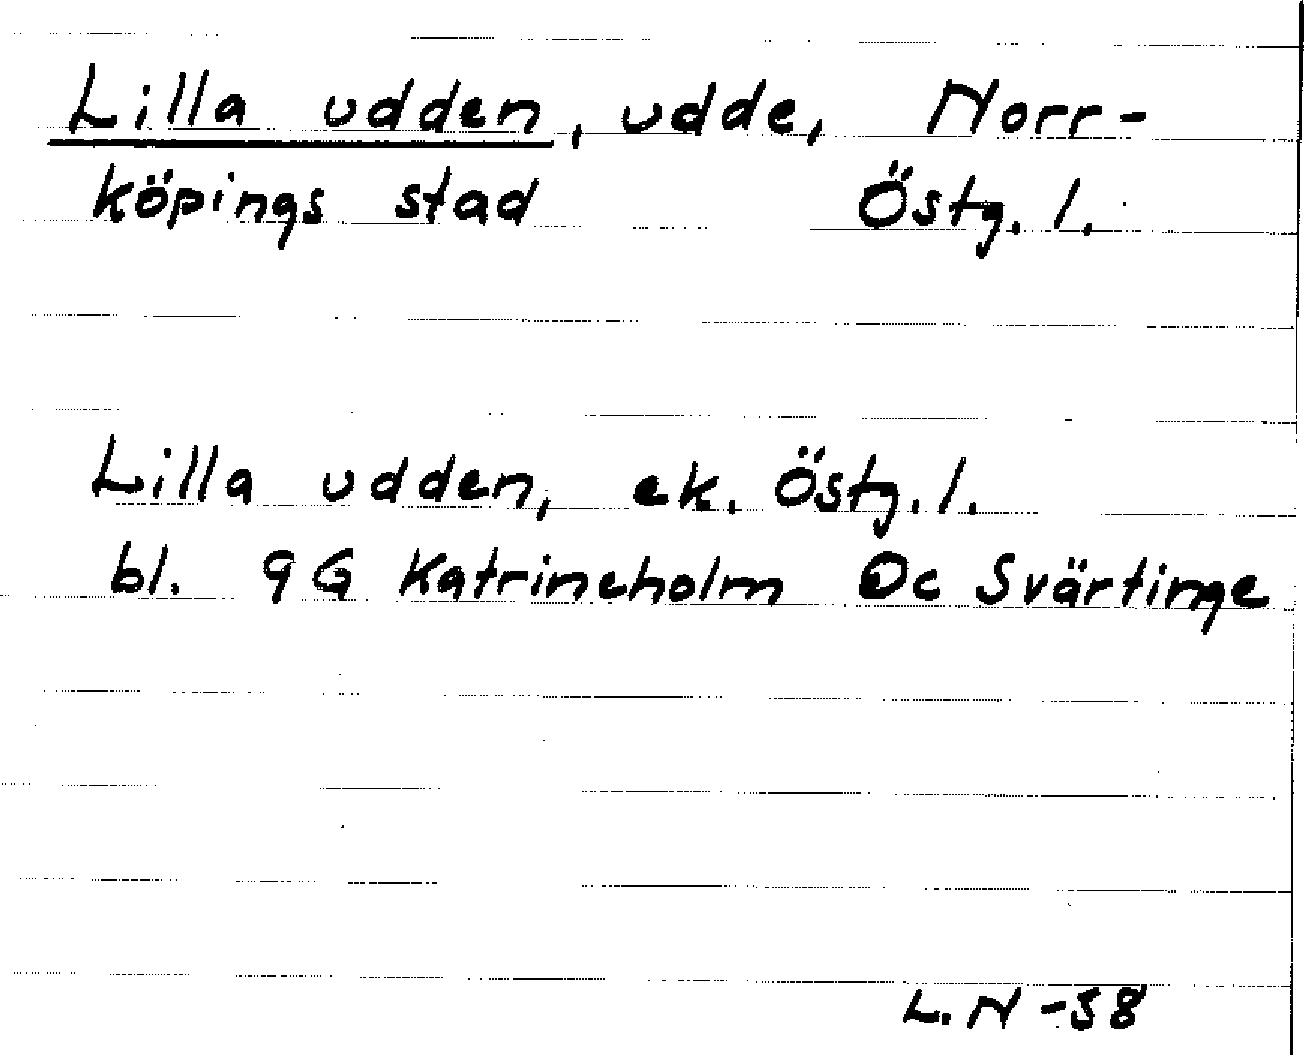 Lilla udden, udde, Norr-
köpings stad Östg. l.
Lilla udden, ek. Östg. l.
bl. 9G Katrineholm Oc Svärtinge
L. N -58